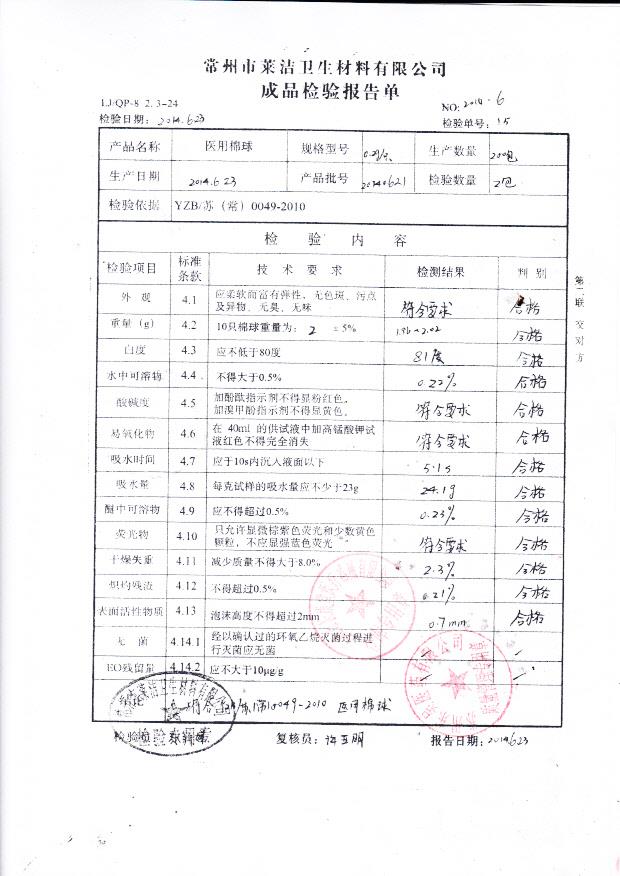 常州市莱洁卫生材料有限公司
成品检验报告单
LJ/QP-8.2.3-24
NO: 2014.6
检验日期: 2014.6.23
检验单号: 15
产品名称 医用棉球 规格型号 0.2g/ 生产数量 200包
生产日期 2014.6.23 产品批号 20140621 检验数量 2包
检验依据 YZB/苏（常）0049-2010
检 验 内 容
检验项目 标准条款 技 术 要 求 检测结果 判 别
外 观 4.1 应柔软而富有弹性、无色斑、污点及异物、无臭、无味 符合要求 合格
重量（g） 4.2 10只棉球重量为: 2 ±5% 1.96~2.02 合格
白度 4.3 应不低于80度 81度 合格
水中可溶物 4.4 不得大于0.5% 0.22% 合格
酸碱度 4.5 加酚酞指示剂不得显粉红色。加溴甲酚指示剂不得显黄色。 符合要求 合格
易氧化物 4.6 在 40ml 的供试液中加高锰酸钾试液红色不得完全消失 符合要求 合格
吸水时间 4.7 应于10s内沉入液面以下 5.1s 合格
吸水量 4.8 每克试样的吸水量应不少于23g 24.1g 合格
醚中可溶物 4.9 应不得超过0.5% 0.23% 合格
荧光物 4.10 只允许显微棕紫色荧光和少数黄色颗粒，不应显强蓝色荧光 符合要求 合格
干燥失重 4.11 减少质量不得大于8.0% 2.3% 合格
炽灼残渣 4.12 不得超过0.5% 0.21% 合格
表面活性物质 4.13 泡沫高度不得超过2mm 0.7mm 合格
无 菌 4.14.1 经以确认过的环氧乙烷灭菌过程进行灭菌应无菌 -
EO残留量 4.14.2 应不大于10μg/g -
符合 0049-2010 医用棉球
检验专用章
复核员: 报告日期: 2014.6.23
第二联 交对方